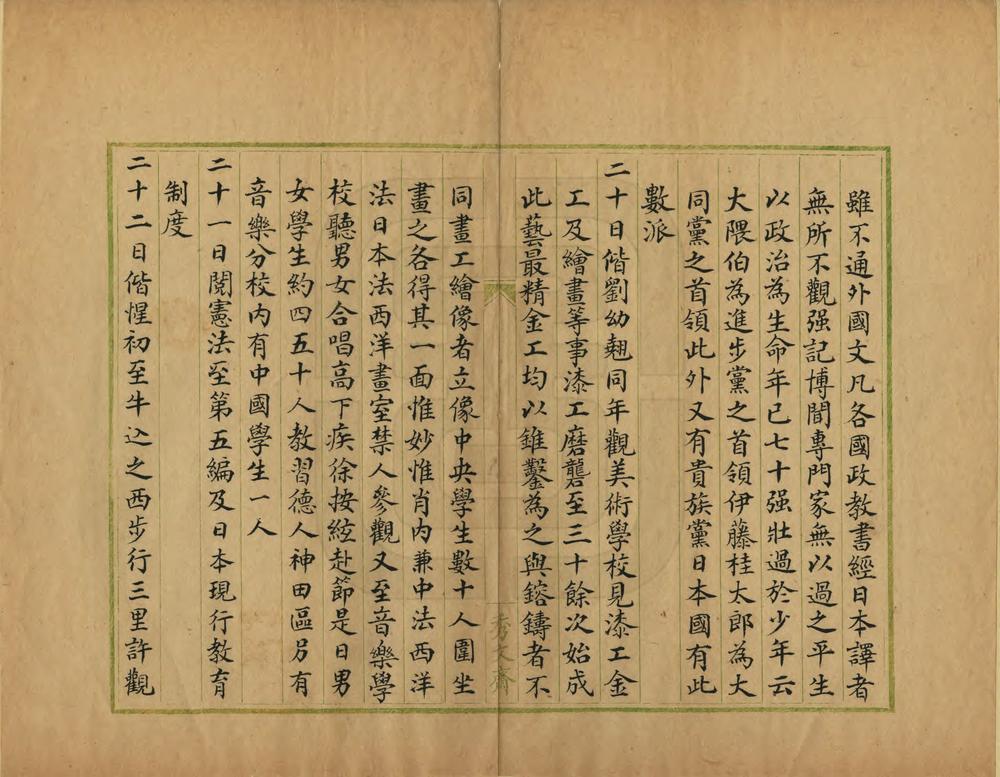 雖不通外國文凡各國政教書經日本譯者
無所不觀强記博聞專門家無以過之平生
以政治為生命年已七十强壯過於少年云
大隈伯為進步黨之首領伊藤桂太郎為大
同黨之首領此外又有貴族黨日本國有此
數派
二十日偕劉幼𣚴同年觀美術學校見漆工金
工及繪畫等事漆工磨礲至三十餘次始成
此藝最精金工均以錐鑿為之與鎔鑄者不
秀文齋
同畫工繪像者立像中央學生數十人圍坐
畫之各得其一面惟妙惟肖內兼中法西洋
法日本法西洋畫室禁人參觀又至音樂學
校聽男女合唱高下疾徐按絃赴節是日男
女學生約四五十人教習德人神田區另有
音樂分校內有中國學生一人
二十一日閱憲法至第五編及日本現行教育
制度
二十二日偕惺初至牛込之西步行三里許觀